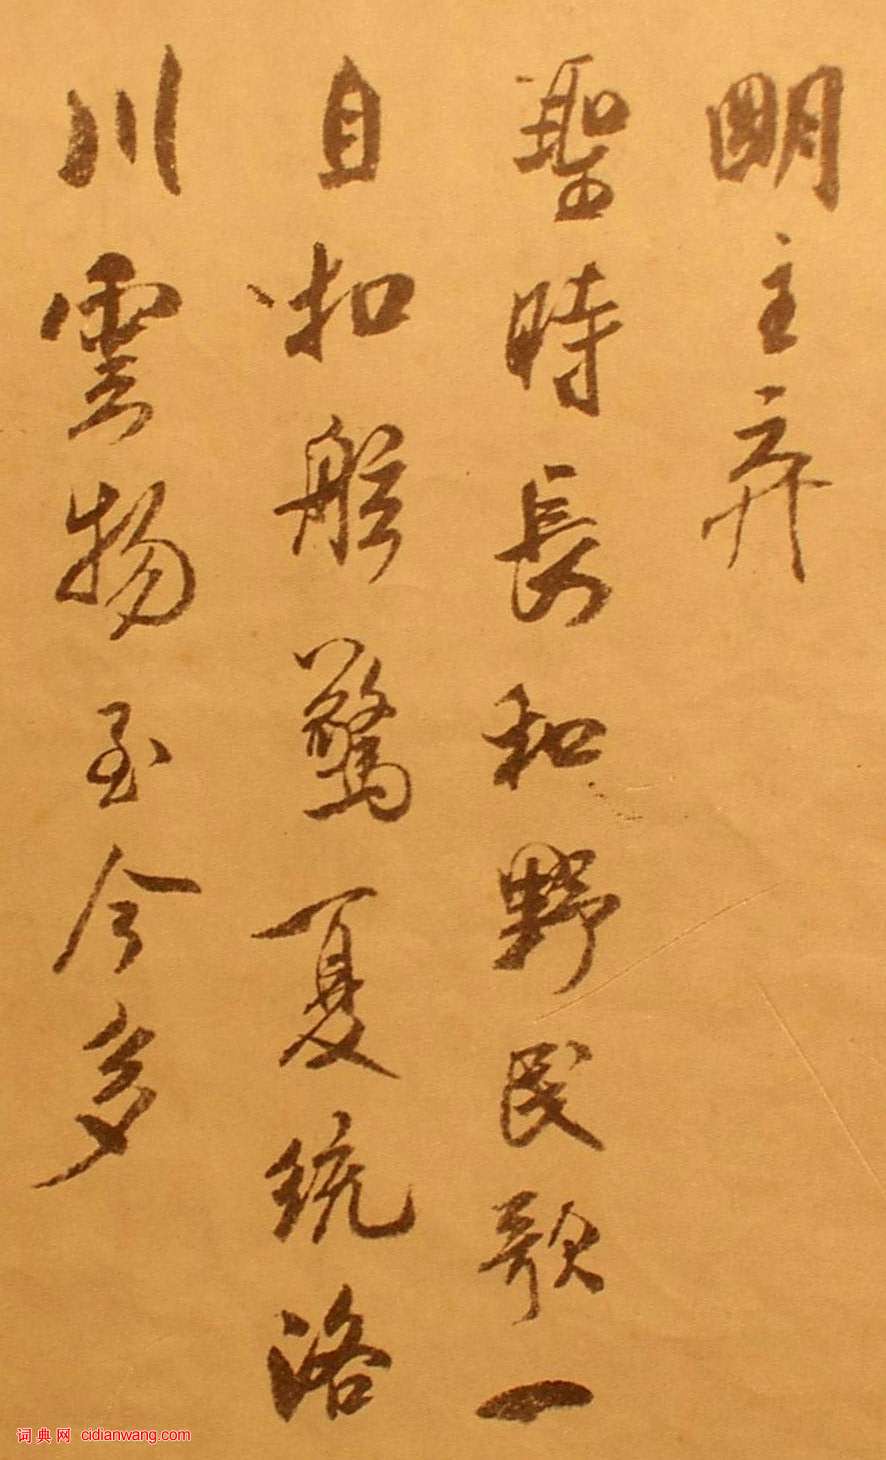 明主弃
聖時長和野民歌一
自扣舷驚夏統洛
川雲物至今多
词典网 cidianwang.com